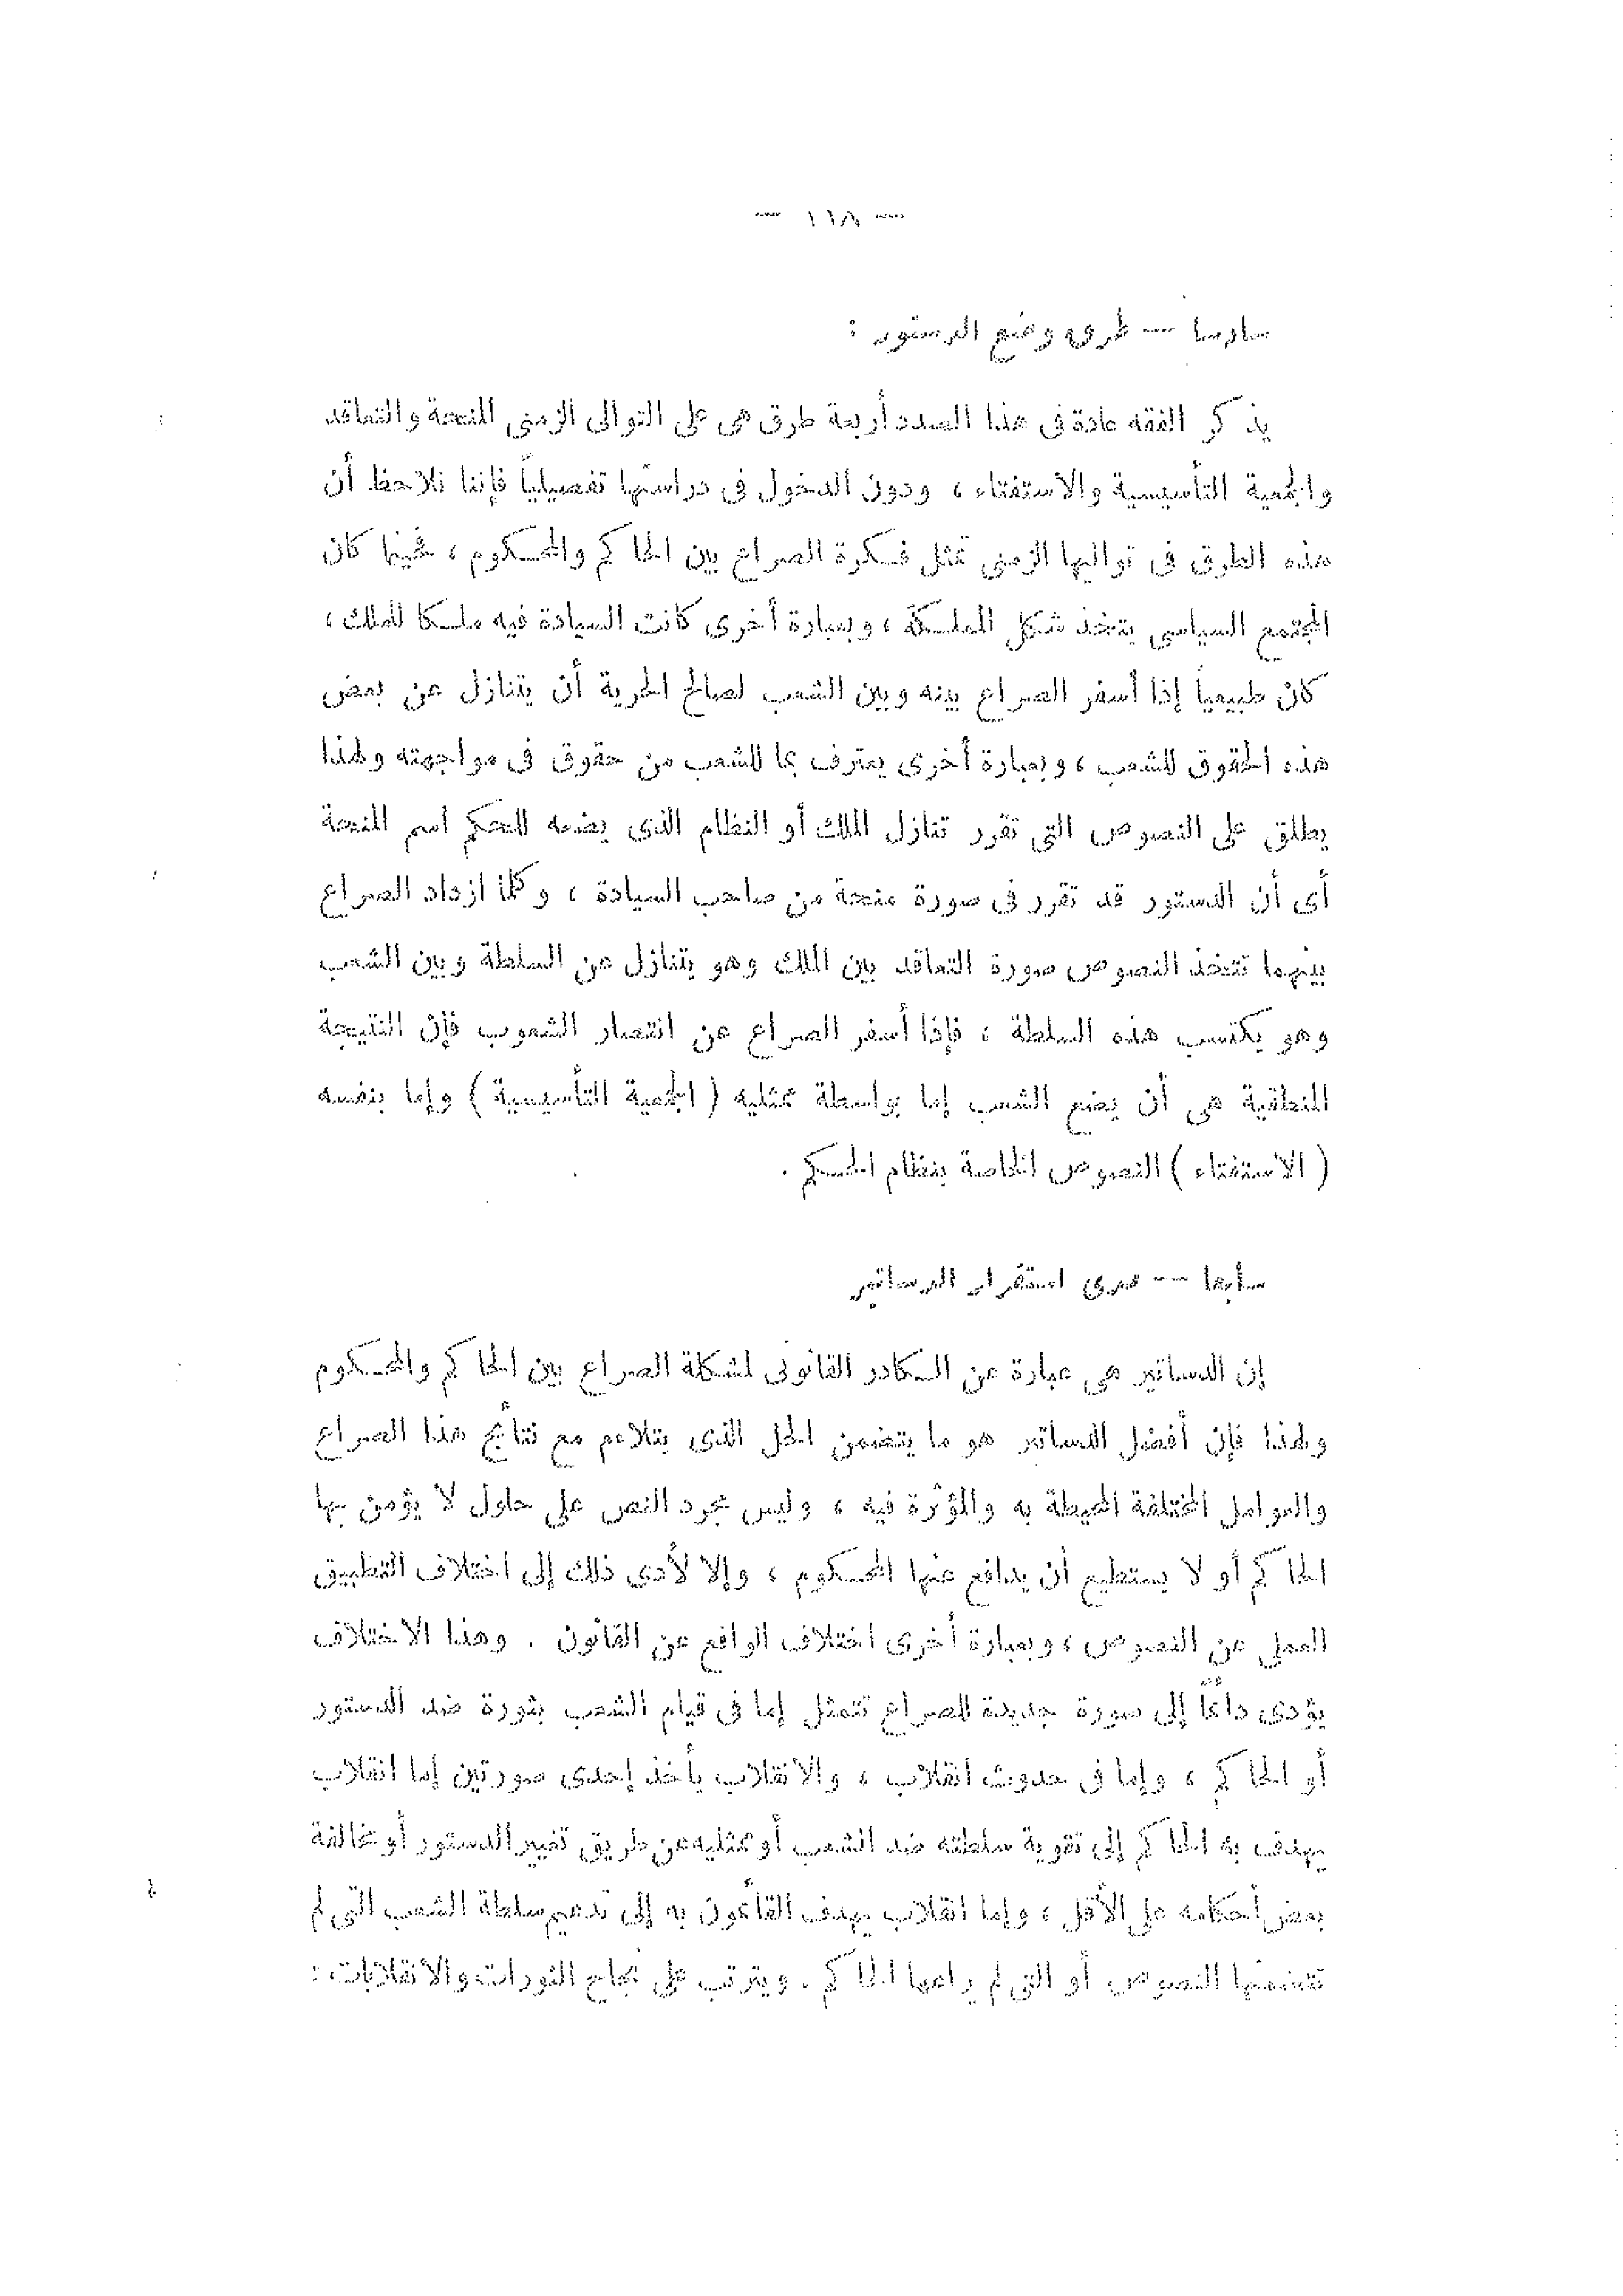 — ١١٨ —
سادسا — طرق وضع الدستور :
يذكر الفقه عادة فى هذا الصدد أربعة طرق هى على التوالى الزمنى المنحة والتعاقد
والجمعية التأسيسية والاستفتاء ، ودون الدخول فى دراستها تفصيلياً فإننا نلاحظ أن
هذه الطرق فى تواليها الزمنى تمثل فكرة الصراع بين الحاكم والمحكوم ، فحينما كان
المجتمع السياسى يتخذ شكل المملكة ، وبعبارة أخرى كانت السيادة فيه ملكا للملك ،
كان طبيعياً إذا أسفر الصراع بينه وبين الشعب لصالح الحرية أن يتنازل عن بعض
هذه الحقوق للشعب ، وبعبارة أخرى يعترف بما للشعب من حقوق فى مواجهته ولهذا
يطلق على النصوص التى تقرر تنازل الملك أو النظام الذى يضعه للحكم اسم المنحة
أى أن الدستور قد تقرر فى صورة منحة من صاحب السيادة ، وكلما ازداد الصراع
بينهما تتخذ النصوص صورة التعاقد بين الملك وهو يتنازل عن السلطة وبين الشعب
وهو يكتسب هذه السلطة ، فإذا أسفر الصراع عن انتصار الشعوب فإن النتيجة
المنطقية هى أن يضع الشعب إما بواسطة ممثليه ( الجمعية التأسيسية ) وإما بنفسه
( الاستفتاء ) النصوص الخاصة بنظام الحكم .
سابعا — مدى استقرار الدساتير
إن الدساتير هى عبارة عن الكادر القانونى لمشكلة الصراع بين الحاكم والمحكوم
ولهذا فإن أفضل الدساتير هو ما يتضمن الحل الذى يتلاءم مع نتائج هذا الصراع
والعوامل المختلفة المحيطة به والمؤثرة فيه ، وليس مجرد النص على حلول لا يؤمن بها
الحاكم أو لا يستطيع أن يدافع عنها المحكوم ، وإلا لأدى ذلك إلى اختلاف التطبيق
العملى عن النصوص ، وبعبارة أخرى اختلاف الواقع عن القانون . وهذا الاختلاف
يؤدى دائماً إلى صورة جديدة للصراع تتمثل إما فى قيام الشعب بثورة ضد الدستور
أو الحاكم ، وإما فى حدوث انقلاب ، والانقلاب يأخذ إحدى صورتين إما انقلاب
يهدف به الحاكم إلى تقوية سلطته ضد الشعب أو ممثليه عن طريق تغيير الدستور أو مخالفة
بعض أحكامه على الأقل ، وإما انقلاب يهدف القائمون به إلى تدعيم سلطة الشعب التى لم
تتضمنها النصوص أو التى لم يراعها الحاكم . ويترتب على نجاح الثورات والانقلابات :